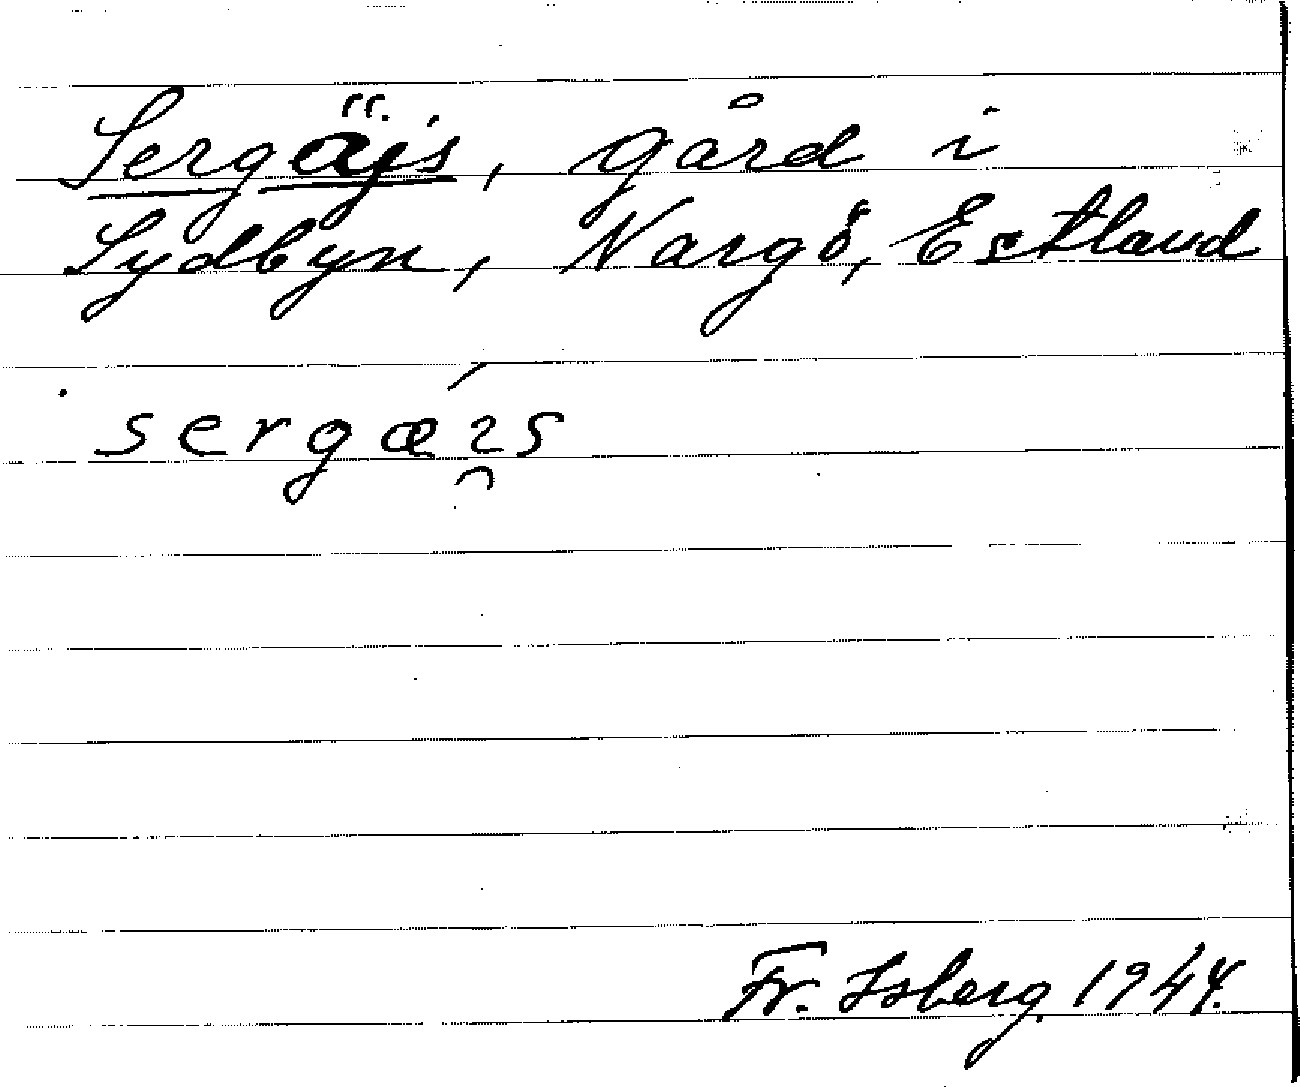 Sergäjs, gård i
Sydbyn, Nargö, Estland
sergǽı̯s
Fr. Isberg 1944.